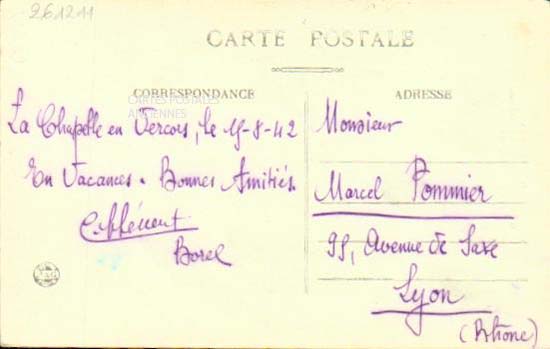 261211
CARTE POSTALE
CORRESPONDANCE
CARTES POSTALES
ANCIENNES
La Chapelle en Vercors, le 15-8-42
En Vacances. Bonnes Amitiés.
Borel
ADRESSE
Monsieur
Marcel Pommier
95, Avenue de Saxe
Lyon
(Rhône)